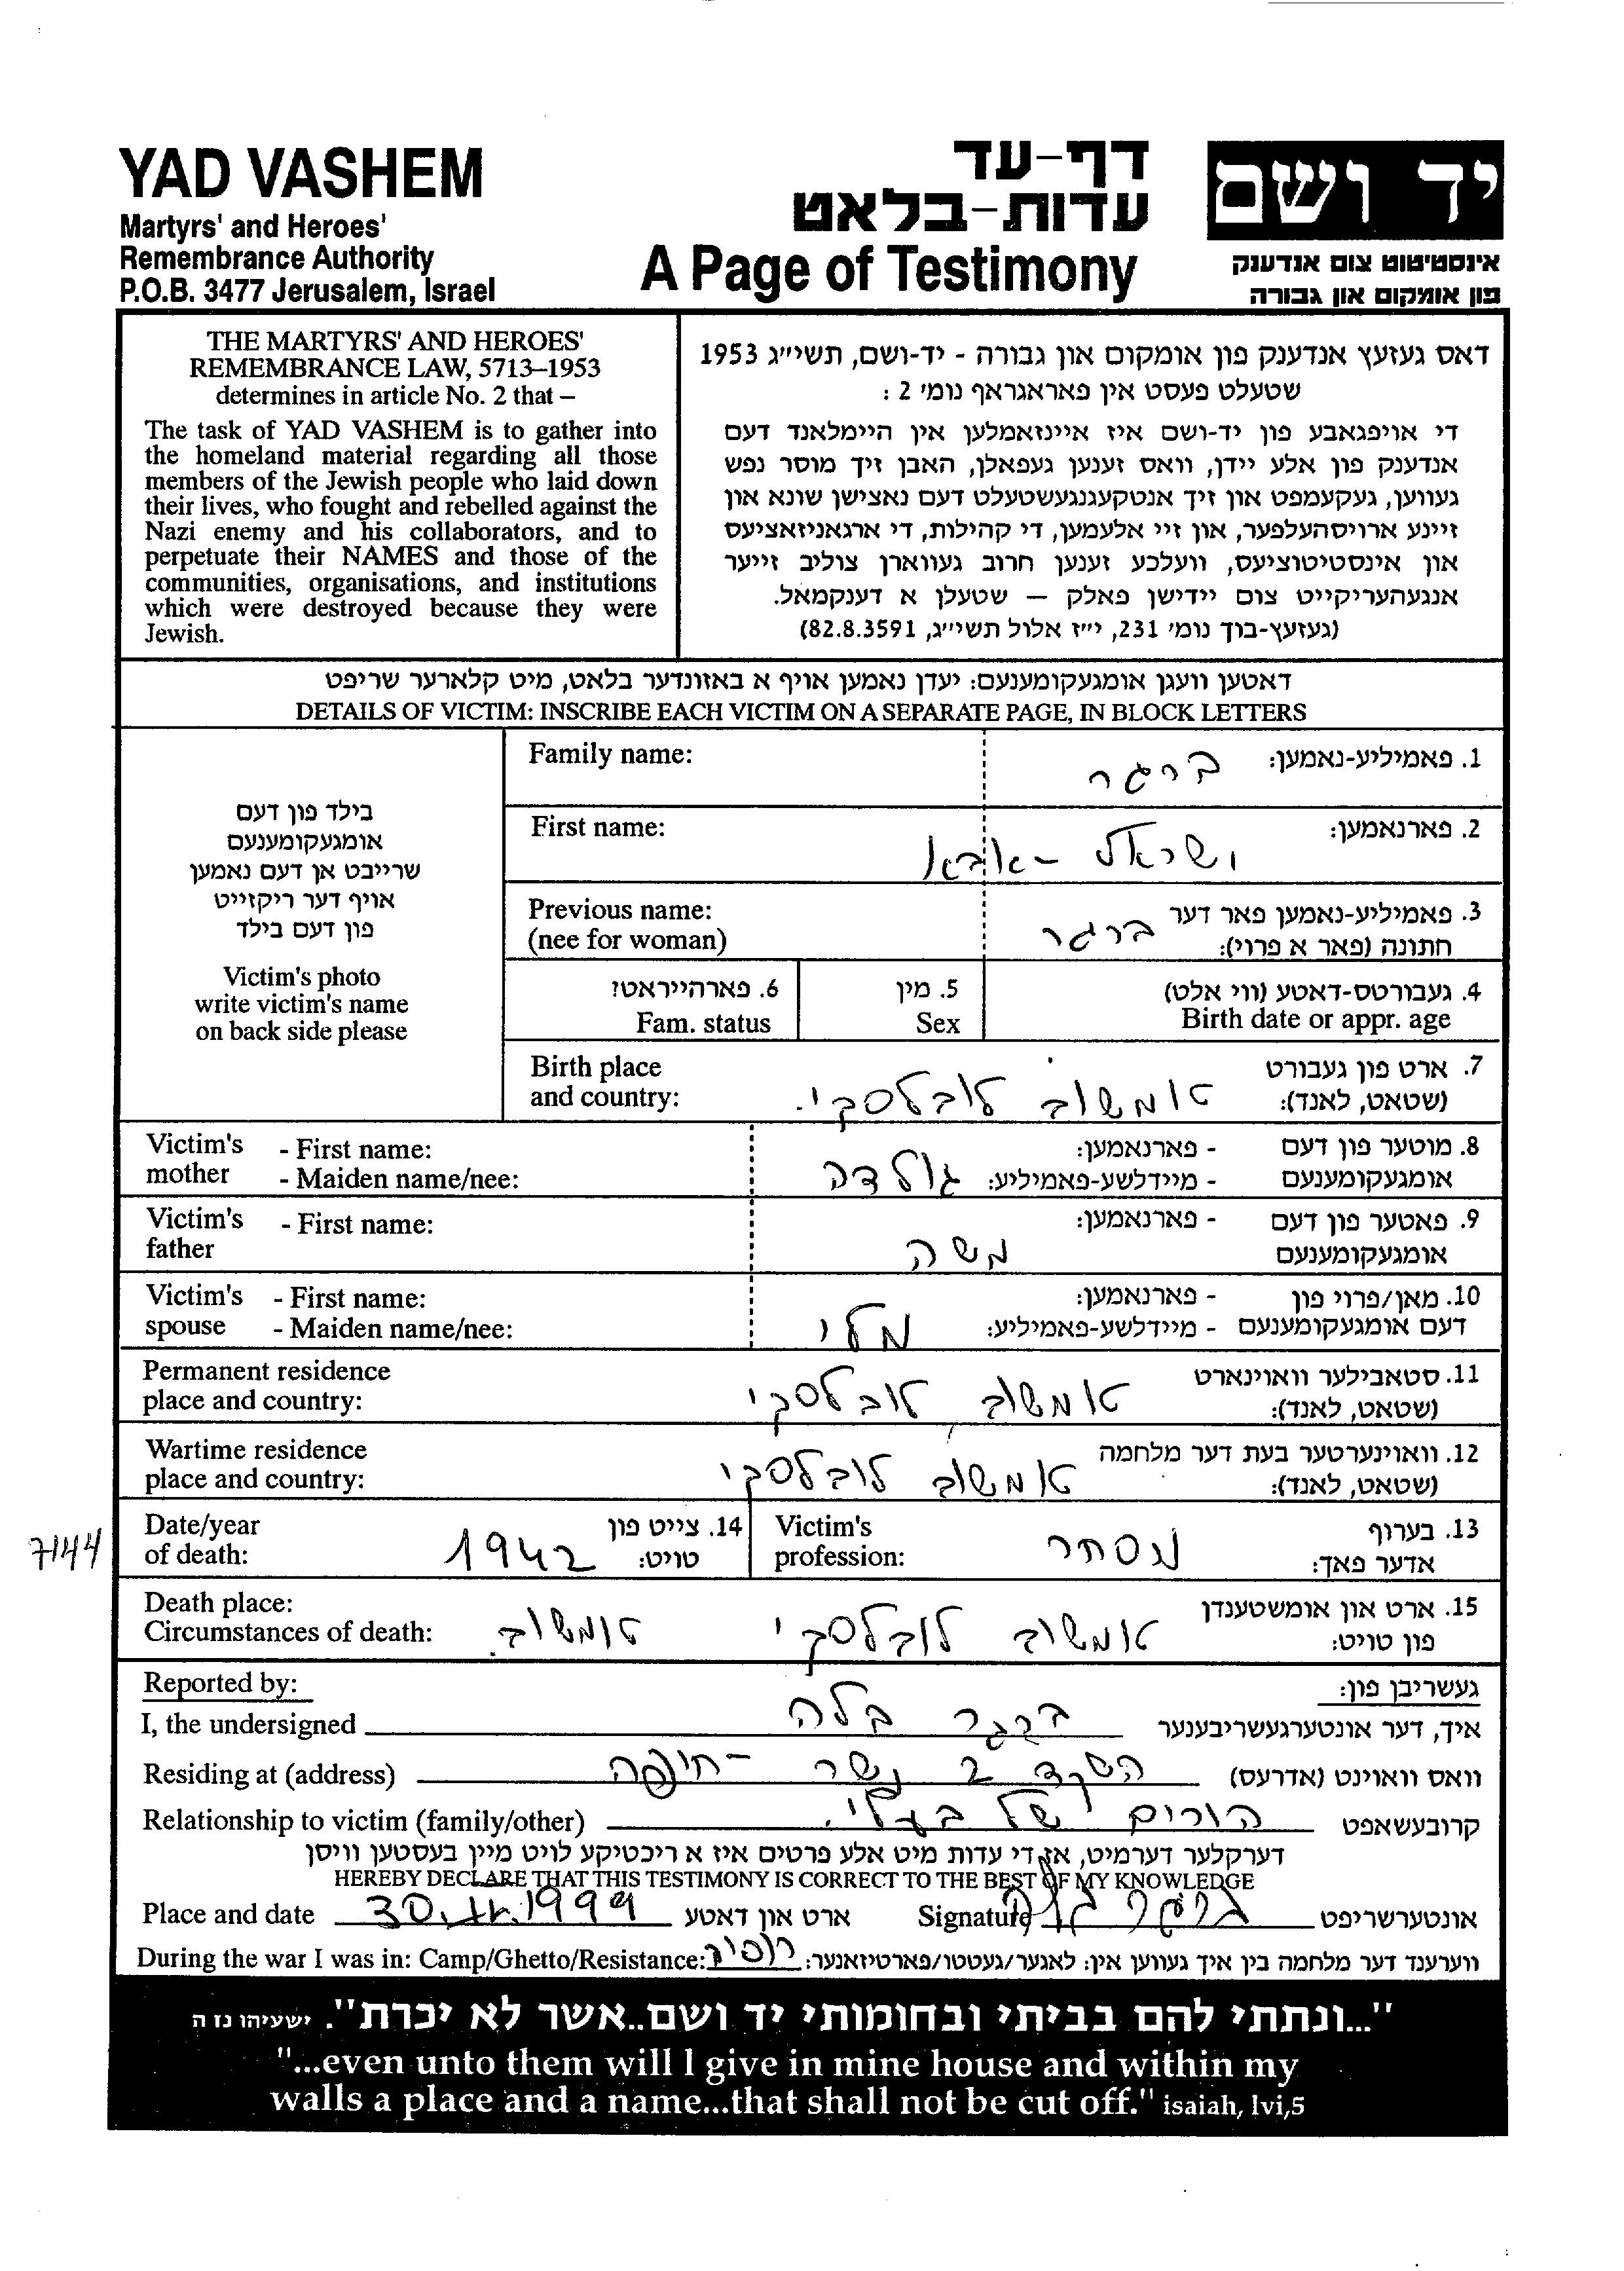 YAD VASHEM
Martyrs' and Heroes'
Remembrance Authority
P.O.B. 3477 Jerusalem, Israel
דף-עד
עדות-בלאט
A Page of Testimony
יד ושם
אינסטיטוט צום אנדענק
פון אומקום און גבורה
THE MARTYRS' AND HEROES'
REMEMBRANCE LAW, 5713–1953
determines in article No. 2 that –
The task of YAD VASHEM is to gather into
the homeland material regarding all those
members of the Jewish people who laid down
their lives, who fought and rebelled against the
Nazi enemy and his collaborators, and to
perpetuate their NAMES and those of the
communities, organisations, and institutions
which were destroyed because they were
Jewish.
דאס געזעץ אנדענק פון אומקום און גבורה - יד-ושם, תשי״ג 1953
שטעלט פעסט אין פאראגראף נומ׳ 2 :
די אויפגאבע פון יד-ושם איז איינזאמלען אין היימלאנד דעם
אנדענק פון אלע יידן, וואס זענען געפאלן, האבן זיך מוסר נפש
געווען, געקעמפט און זיך אנטקעגנגעשטעלט דעם נאצישן שונא און
זיינע ארויסהעלפער, און זיי אלעמען, די קהילות, די ארגאניזאציעס
און אינסטיטוציעס, וועלכע זענען חרוב געווארן צוליב זייער
אנגעהעריקייט צום יידישן פאלק — שטעלן א דענקמאל.
(געזעץ-בוך נומ׳ 231, י״ז אלול תשי״ג, 82.8.3591)
דאטען וועגן אומגעקומענעם: יעדן נאמען אויף א באזונדער בלאט, מיט קלארער שריפט
DETAILS OF VICTIM: INSCRIBE EACH VICTIM ON A SEPARATE PAGE, IN BLOCK LETTERS
בילד פון דעם
אומגעקומענעם
שרייבט אן דעם נאמען
אויף דער ריקזייט
פון דעם בילד
Victim's photo
write victim's name
on back side please
Family name: ברגר 1. פאמיליע-נאמען:
First name: ישראל - אבא 2. פארנאמען:
Previous name: 3. פאמיליע-נאמען פאר דער
(nee for woman) ברגר חתונה (פאר א פרוי):
6. פארהייראט? 5. מין 4. געבורטס-דאטע (ווי אלט)
Fam. status Sex Birth date or appr. age
Birth place 7. ארט פון געבורט
and country: טומשוב לובלסקי. (שטאט, לאנד):
Victim's - First name: - פארנאמען: 8. מוטער פון דעם
mother - Maiden name/nee: גולדה - מיידלשע-פאמיליע: אומגעקומענעם
Victim's - First name: - פארנאמען: 9. פאטער פון דעם
father משה אומגעקומענעם
Victim's - First name: - פארנאמען: 10. מאן/פרוי פון
spouse - Maiden name/nee: מלי - מיידלשע-פאמיליע: דעם אומגעקומענעם
Permanent residence 11. סטאבילער וואוינארט
place and country: טומשוב לובלסקי (שטאט, לאנד):
Wartime residence 12. וואוינערטער בעת דער מלחמה
place and country: טומשוב לובלסקי (שטאט, לאנד):
7144
Date/year 14. צייט פון Victim's 13. בערוף
of death: 1942 טויט: profession: מסחר אדער פאך:
Death place: 15. ארט און אומשטענדן
Circumstances of death: טומשוב. טומשוב לובלסקי פון טויט:
Reported by: געשריבן פון:
I, the undersigned ברגר בלה איך, דער אונטערגעשריבענער
Residing at (address) השקד 2 נשר - חיפה וואס וואוינט (אדרעס)
Relationship to victim (family/other) הורים של בעלי. קרובעשאפט
דערקלער דערמיט, אז די עדות מיט אלע פרטים איז א ריכטיקע לויט מיין בעסטען וויסן
HEREBY DECLARE THAT THIS TESTIMONY IS CORRECT TO THE BEST OF MY KNOWLEDGE
Place and date 1999 ארט און דאטע Signature אונטערשריפט
During the war I was in: Camp/Ghetto/Resistance: ווערענד דער מלחמה בין איך געווען אין: לאגער/געטטו/פארטיזאנער:
"...ונתתי להם בביתי ובחומותי יד ושם..אשר לא יכרת". ישעיהו נז ה
"...even unto them will I give in mine house and within my
walls a place and a name...that shall not be cut off." isaiah, lvi,5